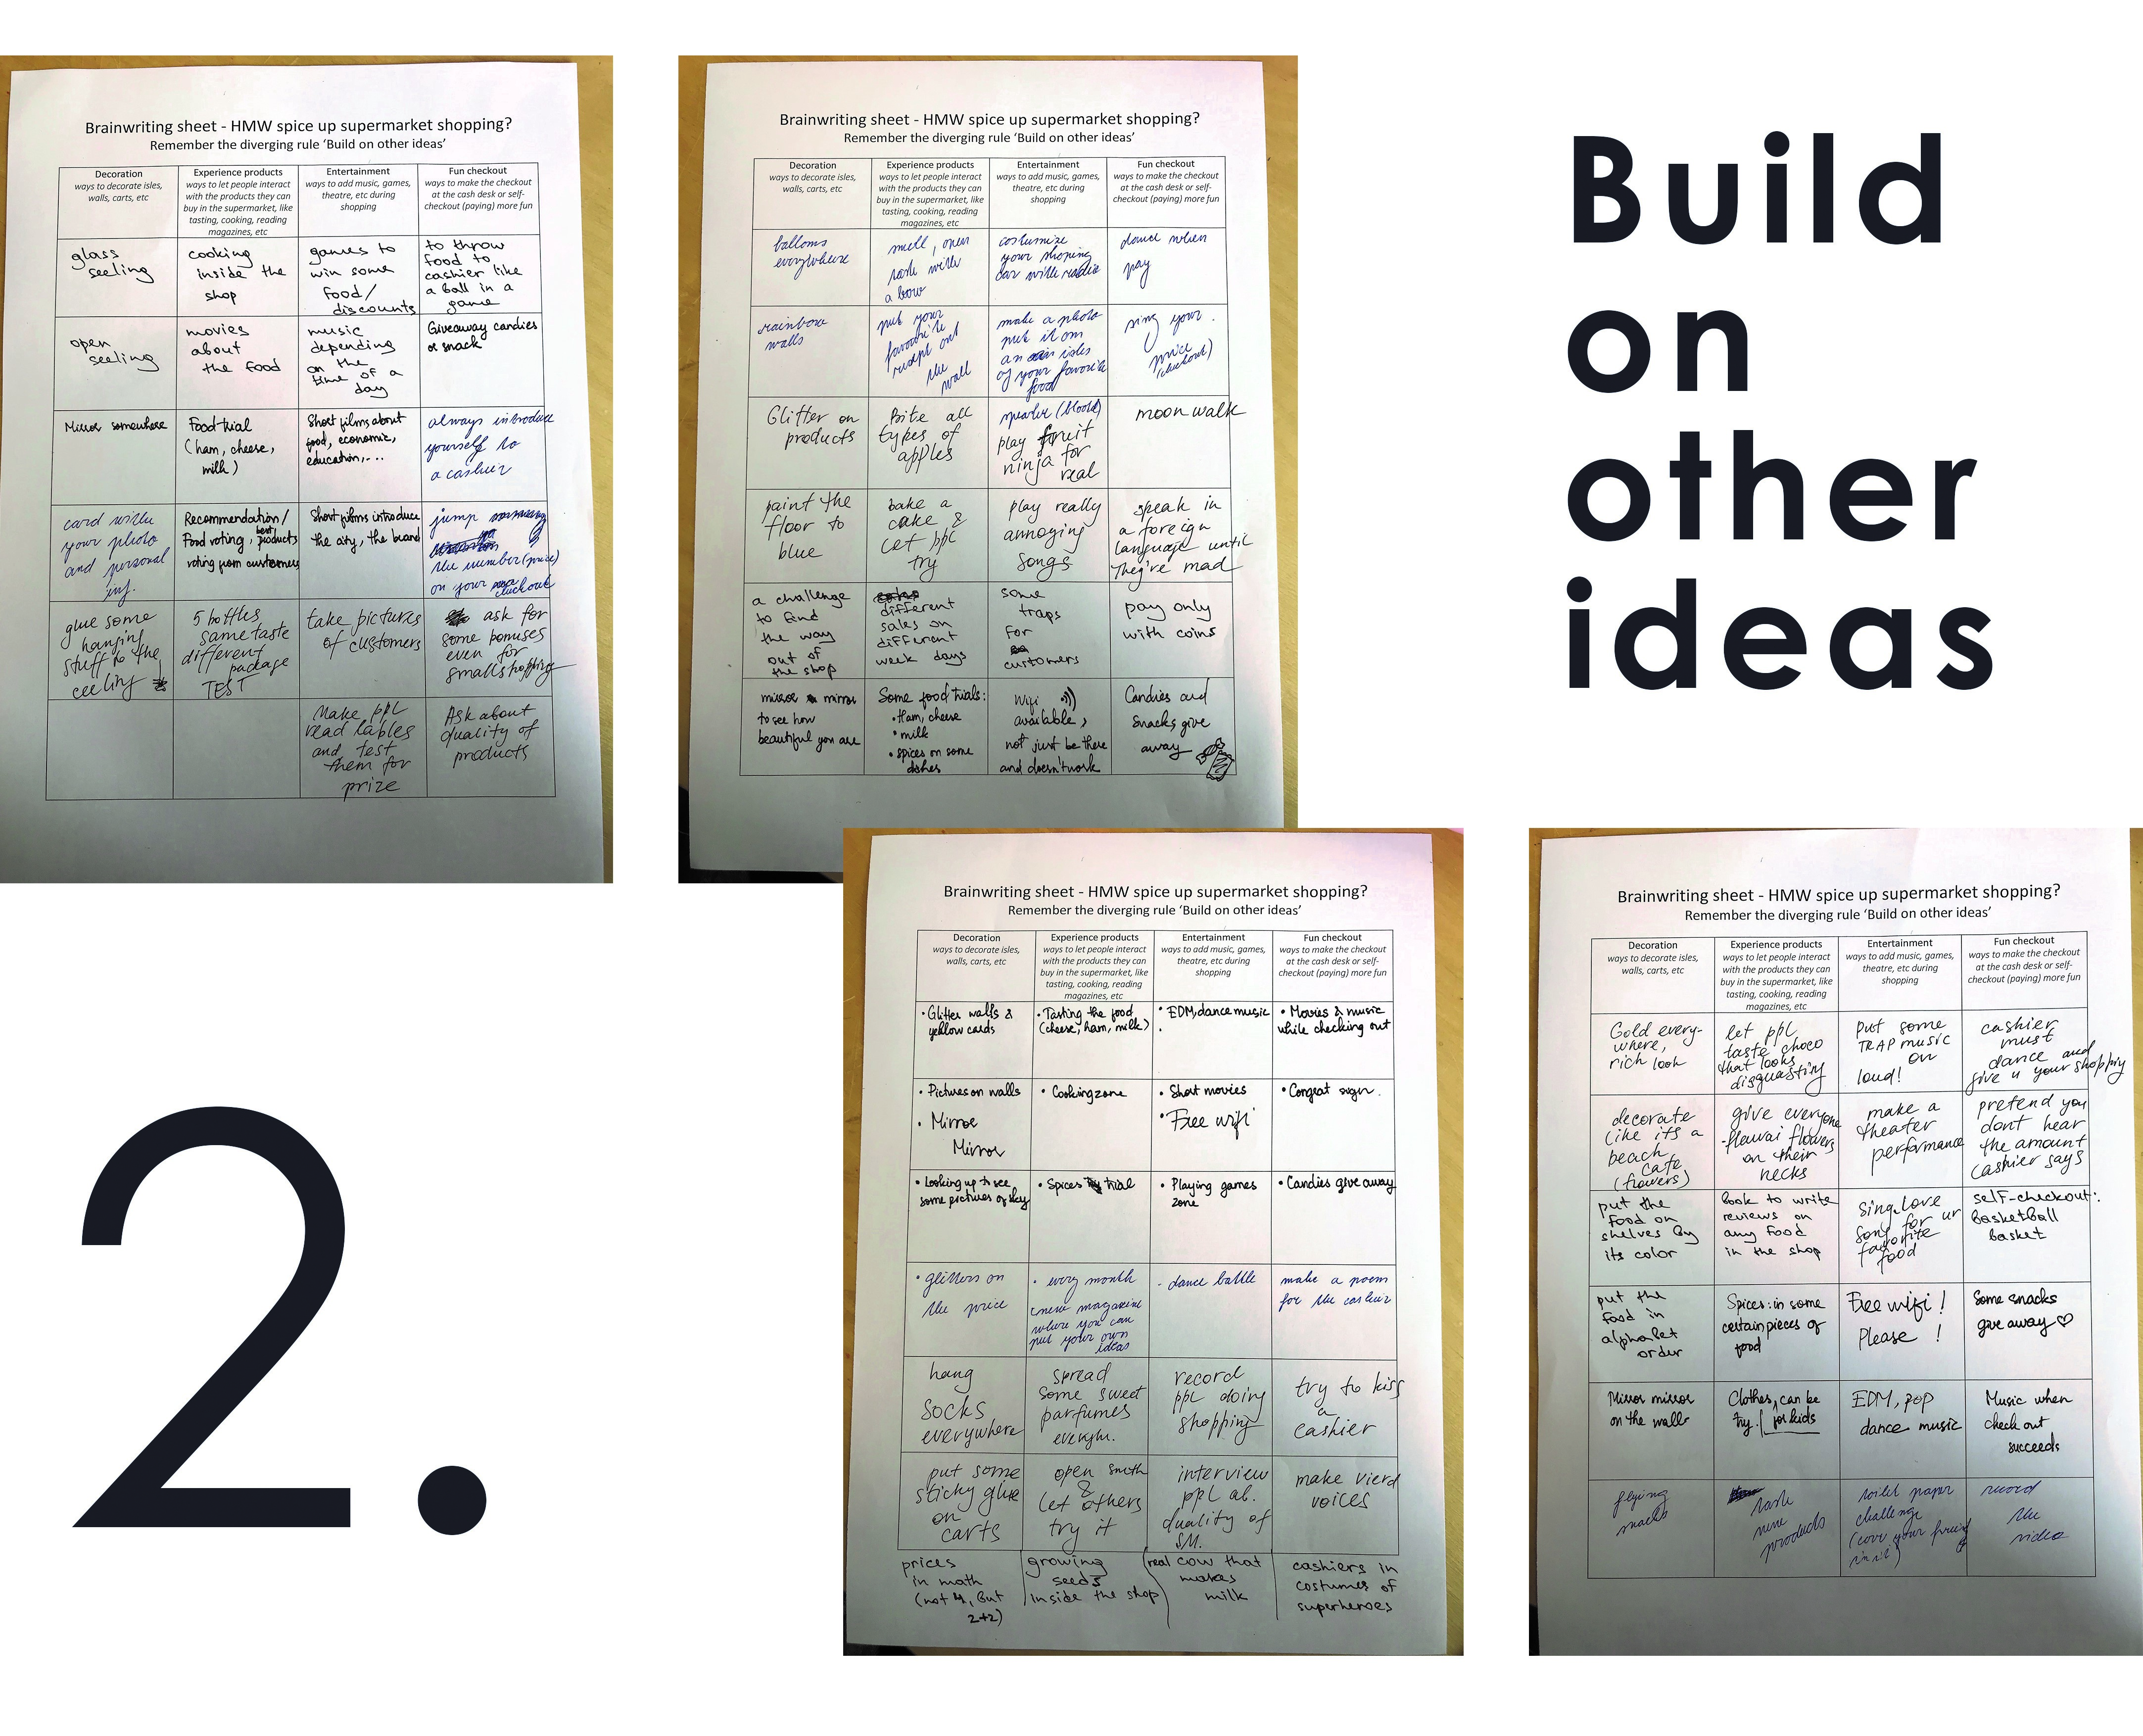 Brainwriting sheet - HMW spice up supermarket shopping?
Remember the diverging rule ‘Build on other ideas’
Decoration
ways to decorate isles,
walls, carts, etc
Experience products
ways to let people interact
with the products they can
buy in the supermarket, like
tasting, cooking, reading
magazines, etc
Entertainment
ways to add music, games,
theatre, etc during
shopping
Fun checkout
ways to make the checkout
at the cash desk or self-
checkout (paying) more fun
glass
seeling
cooking
inside the
shop
games to
win some
food/
discounts
to throw
food to
cashier like
a ball in a
game
open
seeling
movies
about
the food
music
depending
on the
time of a
day
Giveaway candies
or snack
Mirror somewhere
Food trial
(ham, cheese,
milk)
Short films about
food, economic,
education,...
always introduce
yourself to
a cashier
card with
your photo
and personal
inf.
Recommendation/
Food voting, best products
voting from customers
Short films introduce
the city, the brand
jump
the number (price)
on your checkout
glue some
hanging
stuff to the
ceeling
5 bottles
same taste
different
package
TEST
take pictures
of customers
ask for
some bonuses
even for
small shopping
Make ppl
read lables
and test
them for
prize
Ask about
quality of
products
Brainwriting sheet - HMW spice up supermarket shopping?
Remember the diverging rule ‘Build on other ideas’
Decoration
ways to decorate isles,
walls, carts, etc
Experience products
ways to let people interact
with the products they can
buy in the supermarket, like
tasting, cooking, reading
magazines, etc
Entertainment
ways to add music, games,
theatre, etc during
shopping
Fun checkout
ways to make the checkout
at the cash desk or self-
checkout (paying) more fun
balloms
everywhere
smell, open
with
a bow
costumize
your shoping
car with radio
dance when
pay
rainbow
walls
put your
favourite
recept on
the wall
make a photo
put it on
an isles
of your favorite
food
sing your
price
(checkout)
Glitter on
products
Bite all
types of
apples
(blood)
play fruit
ninja for
real
moon walk
paint the
floor to
blue
bake a
cake &
let ppl
try
play really
annoying
songs
speak in
a foreign
language until
they're mad
a challenge
to find
the way
out of
the shop
different
sales on
different
week days
some
traps
for
customers
pay only
with coins
mirror mirror
to see how
beautiful you are
Some food trials:
• Ham, cheese
• milk
• spices on some
dishes
Wifi
available,
not just be there
and doesn't work
Candies and
snacks give
away
Build
on
other
ideas
2.
Brainwriting sheet - HMW spice up supermarket shopping?
Remember the diverging rule ‘Build on other ideas’
Decoration
ways to decorate isles,
walls, carts, etc
Experience products
ways to let people interact
with the products they can
buy in the supermarket, like
tasting, cooking, reading
magazines, etc
Entertainment
ways to add music, games,
theatre, etc during
shopping
Fun checkout
ways to make the checkout
at the cash desk or self-
checkout (paying) more fun
• Glitter walls &
yellow cards
• Tasting the food
(cheese, ham, milk)
• EDM, dance music
• Movies & music
while checking out
• Pictures on walls
• Mirror
Mirror
• Cooking zone
• Short movies
• Free wifi
• Congrat sign.
• Looking up to see
some pictures of sky
• Spices trial
• Playing games
zone
• Candies give away
• glitters on
the price
• every month
new magazine
where you can
put your own
ideas
- dance battle
make a poem
for the cashier
hang
socks
everywhere
spread
some sweet
parfumes
everywh.
record
ppl doing
shopping
try to kiss
a
cashier
put some
sticky glue
on
carts
open smth
&
let others
try it
interview
ppl ab.
quality of
SM.
make vierd
voices
prices
in math
(not 4, but
2+2)
growing
seeds
inside the shop
real cow that
makes
milk
cashiers in
costumes of
superheroes
Brainwriting sheet - HMW spice up supermarket shopping?
Remember the diverging rule ‘Build on other ideas’
Decoration
ways to decorate isles,
walls, carts, etc
Experience products
ways to let people interact
with the products they can
buy in the supermarket, like
tasting, cooking, reading
magazines, etc
Entertainment
ways to add music, games,
theatre, etc during
shopping
Fun checkout
ways to make the checkout
at the cash desk or self-
checkout (paying) more fun
Gold every-
where,
rich look
let ppl
taste choco
that looks
disguasting
put some
TRAP music
on
loud!
cashier
must
dance and
give u your shopping
decorate
like its a
beach
cafe
(flowers)
give everyone
flowers
on their
necks
make a
theater
performance
pretend you
dont hear
the amount
cashier says
put the
food on
shelves by
its color
Book to write
reviews on
any food
in the shop
sing love
song for ur
favorite
food
self-checkout:
Basketball
basket
put the
food in
alphabet
order
Spices: in some
certain pieces of
food
Free wifi!
Please!
Some snacks
give away ♡
Mirror mirror
on the wall
Clothes, can be
try. for kids
EDM, pop
dance music
Music when
check out
succeeds
flying
snacks
new
products
toilet paper
challenge
record
the
video